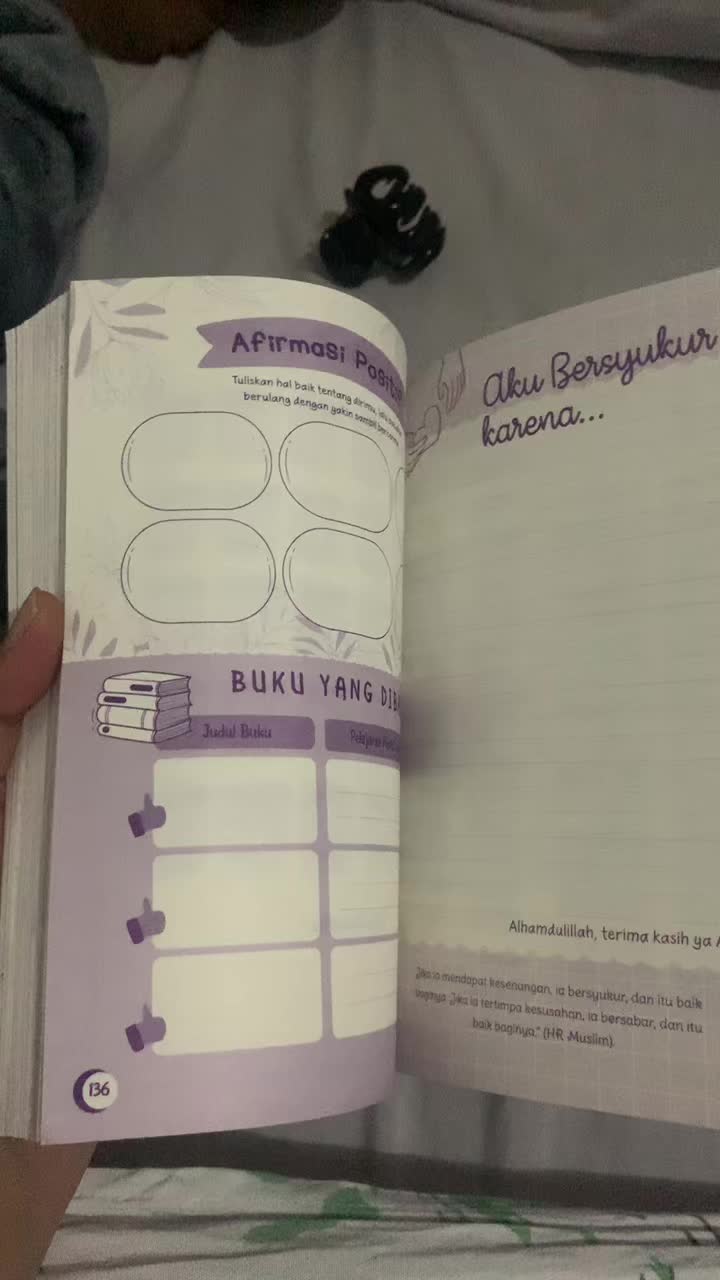 Afirmasi
Tuliskan hal baik tentang dirimu,
berulang dengan yakin sambil
BUKU YANG
Judul Buku
Pelajaran
136
Aku Bersyukur
karena...
Alhamdulillah, terima kasih ya
"Jika ia mendapat kesenangan, ia bersyukur, dan itu baik
baginya. Jika ia tertimpa kesusahan, ia bersabar, dan itu
baik baginya." (HR Muslim).